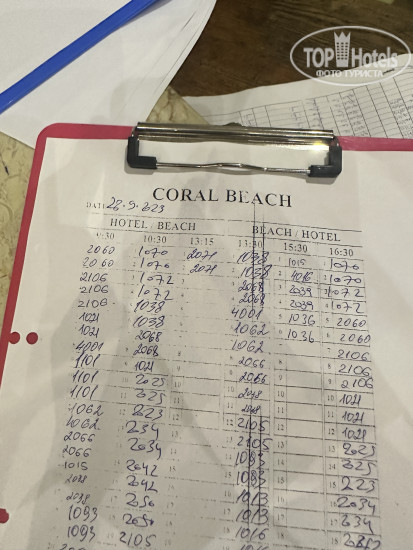 TOP Hotels
ФОТО ТУРИСТА
CORAL BEACH
DATE 28.9.2023
HOTEL / BEACH BEACH / HOTEL
9:30 10:30 13:15 13:30 15:30 16:30
2060 1070 2071 1038 1015 1070
2060 1070 2071 1038 4016 1070
2106 1072 2068 2039 1072
2106 1072 2068 2039 1072
2106 1038 4001 1036 2060
1021 1038 1062 1036 2060
1021 2068 1062 2106
4001 2068 2066 2106
1101 1021 2066 2106
1101 2025 1021
1101 223 1021
1062 223 2105 1021
1062 234 2105 2025
2066 2034 1093 225
2066 2042 1093 223
1015 2042 1013 2034
2050 1013 234
1093 1016
1093 2105